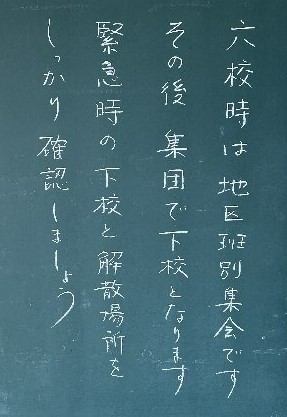 六校時は地区班別集会です
その後 集団で下校となります
緊急時の下校と解散場所を
しっかり確認しましょう